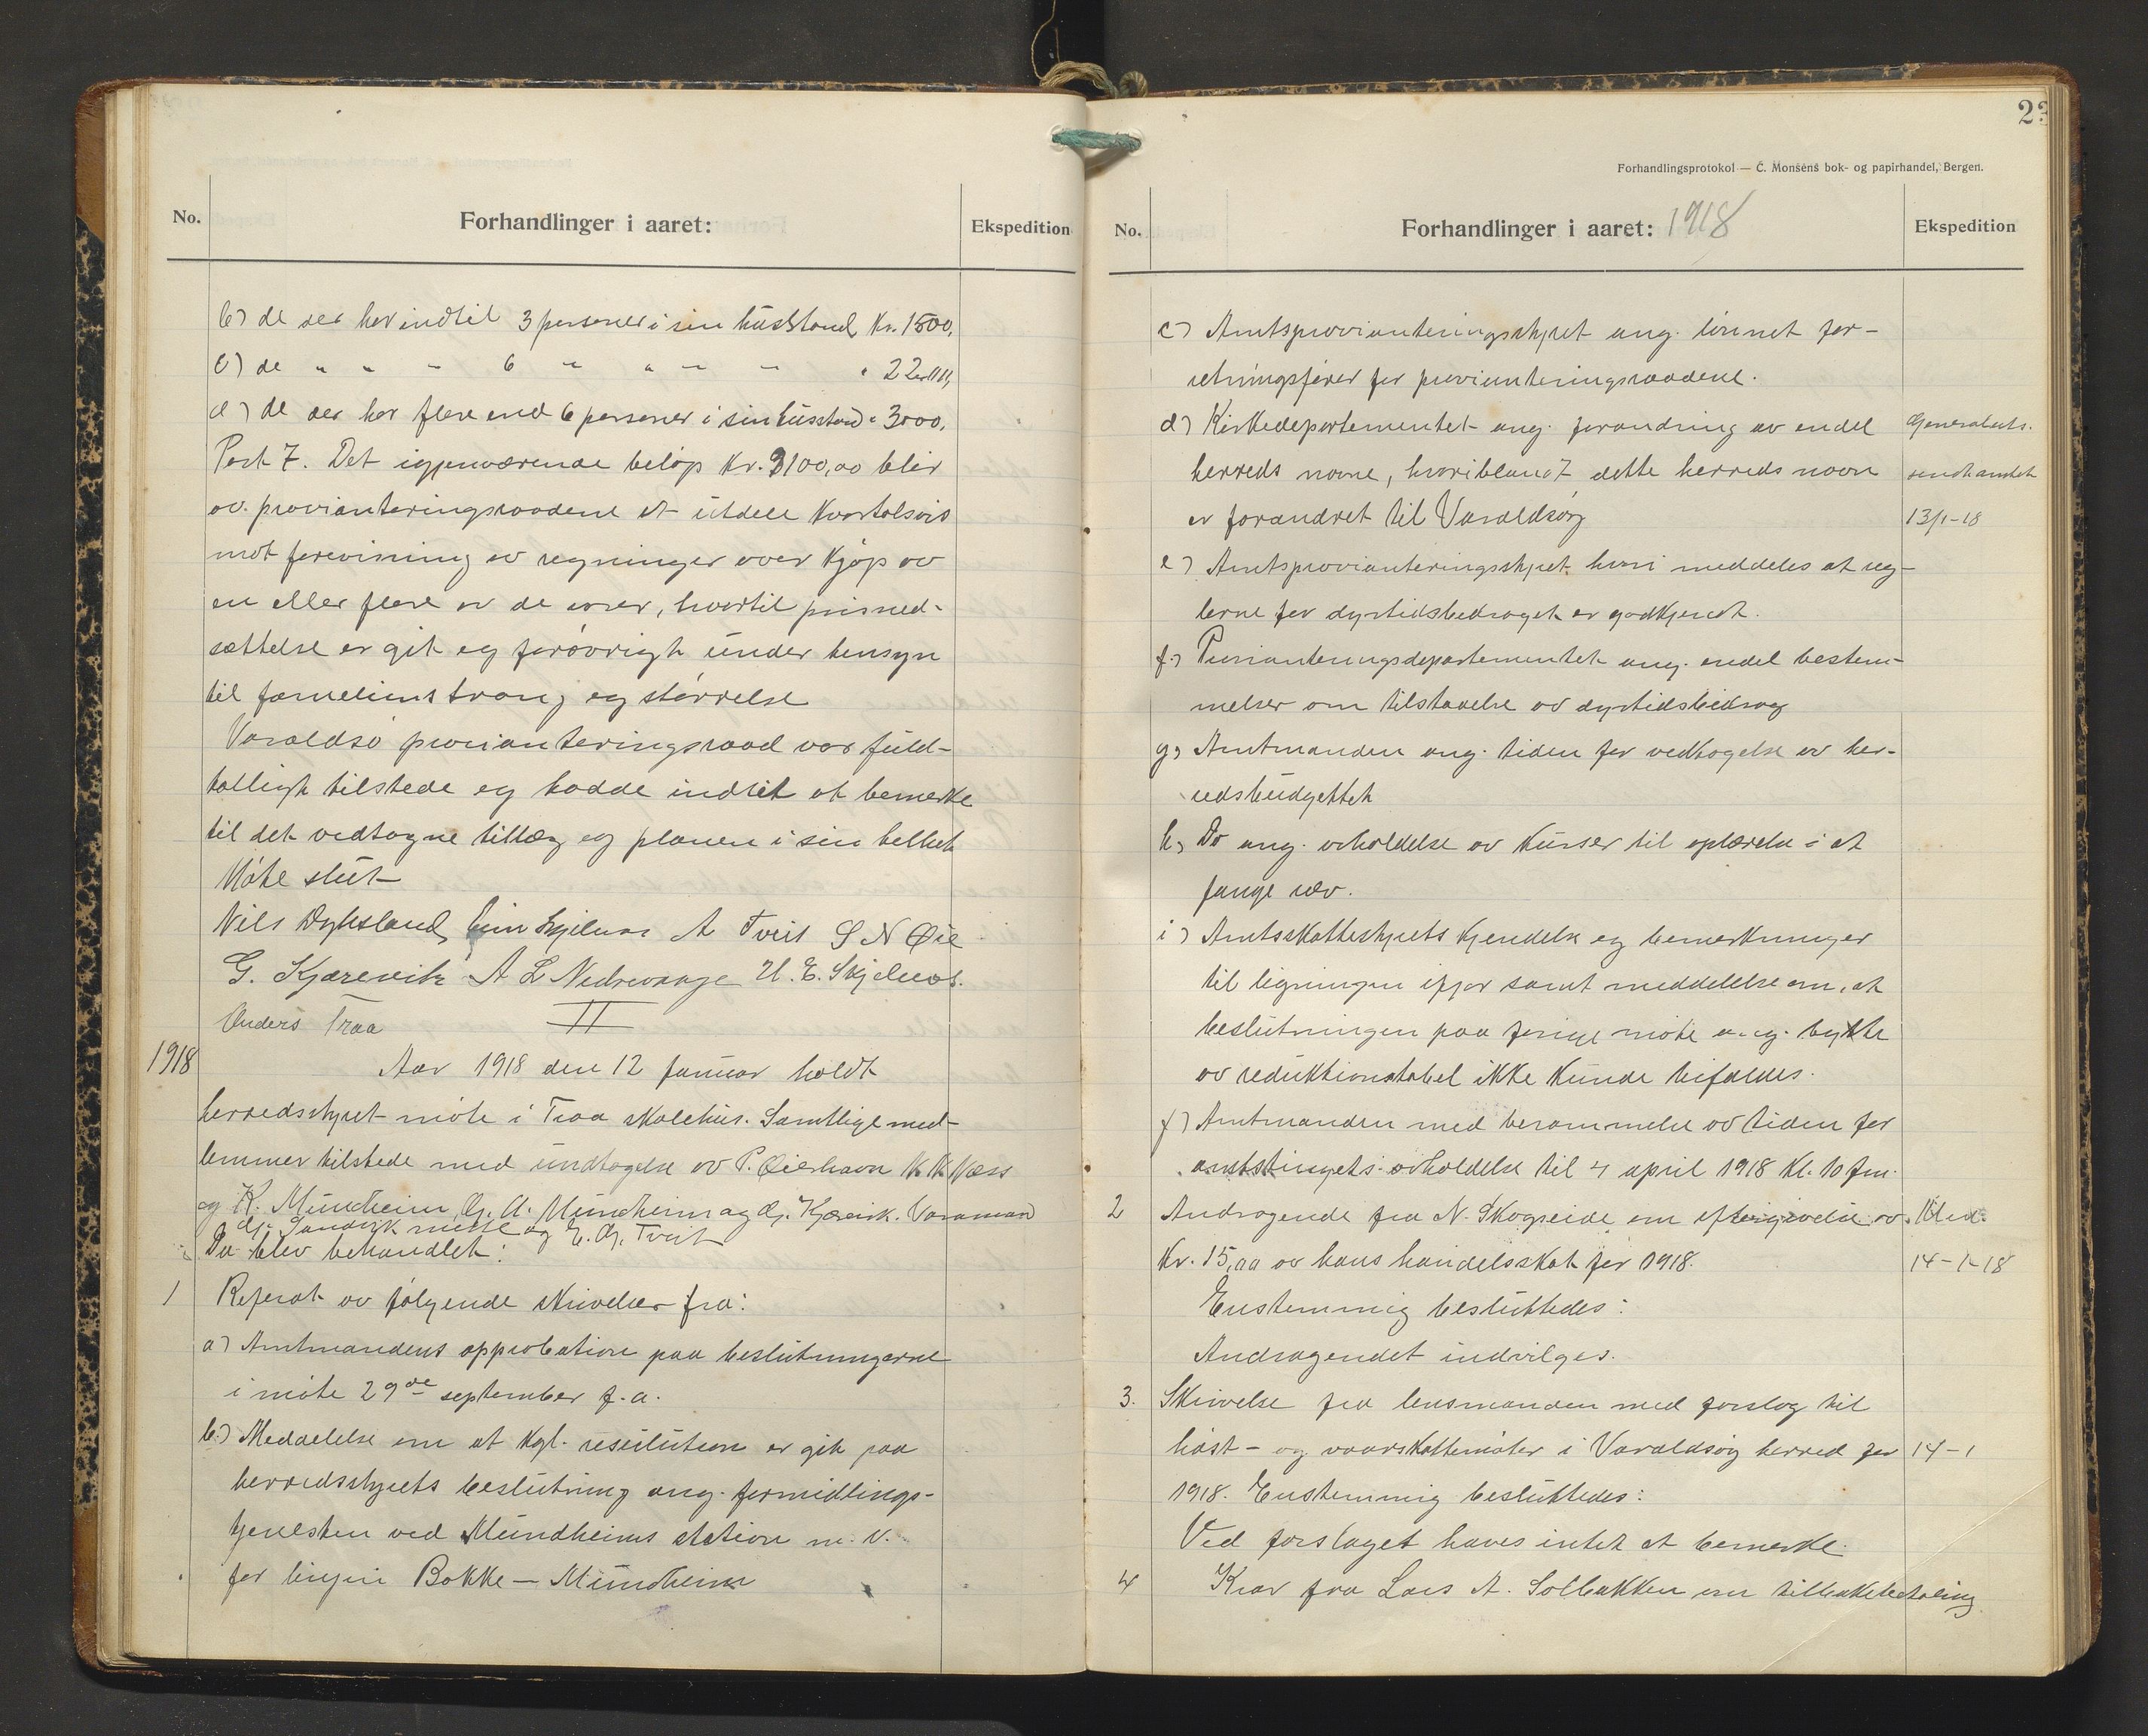 No.
Forhandlinger i aaret:
Ekspedition
b) de der har indtil 3 personer i sin husstand Kr. 1500,
c) de " " " 6 " " " " " 22
d) de der har flere end 6 personer i sin husstand " 3000,
Post 7. Det igjenværende beløp Kr. 3100,00 blir
av provianteringsraadene at utdele kvartalsvis
mot forevisning av regninger over kjøp av
en eller flere av de varer, hvortil prisned-
sættelse er git og forøvrigt under hensyn
til familiens trang og størrelse
Varaldsø provianteringsraad var fuld-
talligt tilstede og hadde indtet at bemerke
til det vedtagne tillæg og planen i sin helhet
Møte slut
Nils Dyhsland, A Tveit S N Øie
G. Kjærevik A L Nedrevaage H. E. Skjelnes.
Anders Traa
II
1918
Aar 1918 den 12 Januar holdt
herredsstyret møte i Traa skolehus. Samtlige med-
lemmer tilstede med undtagelse av P. Øierhavn K. K. Næss
og K. Mundheim, G. A. Mundheim og G. Kjærevik. Varamand
Gj. Sandvik møtte og E. G. Tveit
Da blev behandlet:
1
Referat av følgende skrivelser fra:
a) Amtmandens approbation paa beslutningerne
i møte 29de september f.a.
b) Meddelelse om at kgl. resulution er git paa
herredsstyrets beslutning ang. formidlings-
tjenesten ved Mundheims station m.v.
for linjen Bakke - Mundheim
23
Forhandlingsprotokol — C. Monsens bok- og papirhandel, Bergen.
No.
Forhandlinger i aaret: 1918
Ekspedition
c) Amtsprovianteringsstyret ang. lønnet for-
retningsfører for provianteringsraadene.
d) Kirkedepartementet ang. forandring av endel
herreds navne, hvoriblandt dette herreds navn
er forandret til Varaldsøy
13/1-18
e) Amtsprovianteringsstyret hvori meddeles at reg-
lerne for dyrtidsbedraget er godkjendt.
f) Provianteringsdepartementet ang. endel bestem-
melser om tilstaaelse av dyrtidsbidrag
g) Amtmanden ang. tiden for vedtagelse av her-
redsbudgettet
h) Do ang. avholdelse av kurser til oplærelse i at
fange ræv.
i) Amtsskattestyrets kjendelse og bemerkninger
til ligningen ifjor samt meddelelse om, at
beslutningen paa forrige møte ang. bytte
av reduktionstabel ikke kunde bifaldes.
j) Amtmanden med berammelse av tiden for
amtstingets avholdelse til 4 april 1918 Kl. 10 fm.
2
Andragende fra N. Skogseide om eftergivelse av
Kr. 15,00 av hans handelsskat for 1918.
14-1-18
Enstemmig besluttedes:
Andragendet indvilges.
3.
Skrivelse fra lensmanden med forslag til
høst- og vaarskattemøter i Varaldsøy herred for
14-1
1918. Enstemmig besluttedes:
Ved forslaget haves intet at bemerke.
4
Krav fra Lars A. Solbakken om tilbakebetaling